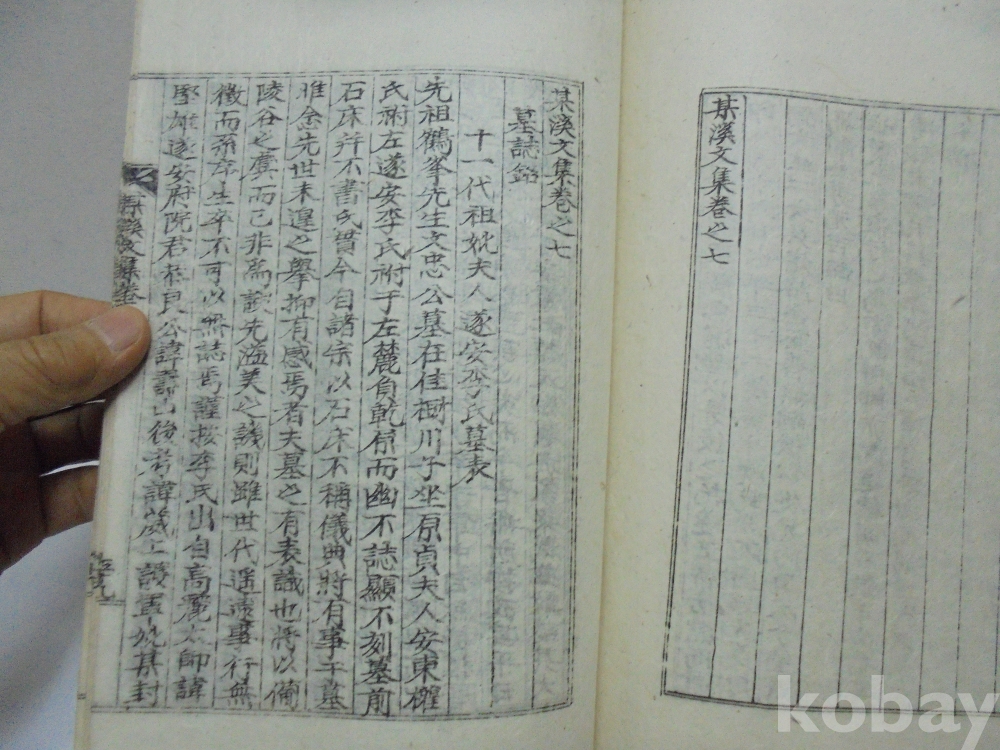 某溪文集卷之七
某溪文集卷之七
墓誌銘
十一代祖妣夫人遂安李氏墓表
先祖鶴峯先生文忠公墓在佳樹川子坐原貞夫人安東權
氏祔左遂安李氏祔于左麓負乾原而幽不誌顯不刻墓前
石床并不書氏貫今自諸宗以石床不稱儀典將有事于墓
惟念先世未遑之擧抑有感焉者夫墓之有表識也將以備
陵谷之虞而已非爲談先溢美之議則雖世代遥遠事行無
徵而系序生卒不可以無誌焉謹按李氏出自高麗太師諱
堅雄遂安府院君 公諱壽山後考諱 妣某封
某溪文集卷
kobay